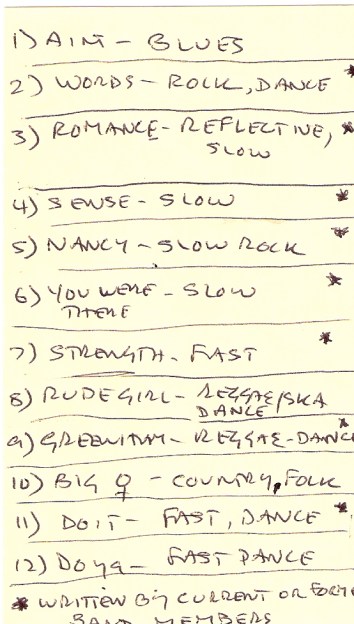 1) AIN'T - BLUES
2) WORDS - ROCK, DANCE *
3) ROMANCE - REFLECTIVE, *
SLOW
4) SENSE - SLOW *
5) NANCY - SLOW ROCK *
6) YOU WERE - SLOW *
THERE
7) STRENGTH - FAST *
8) RUDE GIRL - REGGAE/SKA
DANCE
9) - REGGAE - DANCE *
10) BIG ♀ - COUNTRY, FOLK
11) DO IT - FAST, DANCE *
12) DO YA - FAST DANCE
* WRITTEN BY CURRENT OR
BAND MEMBERS